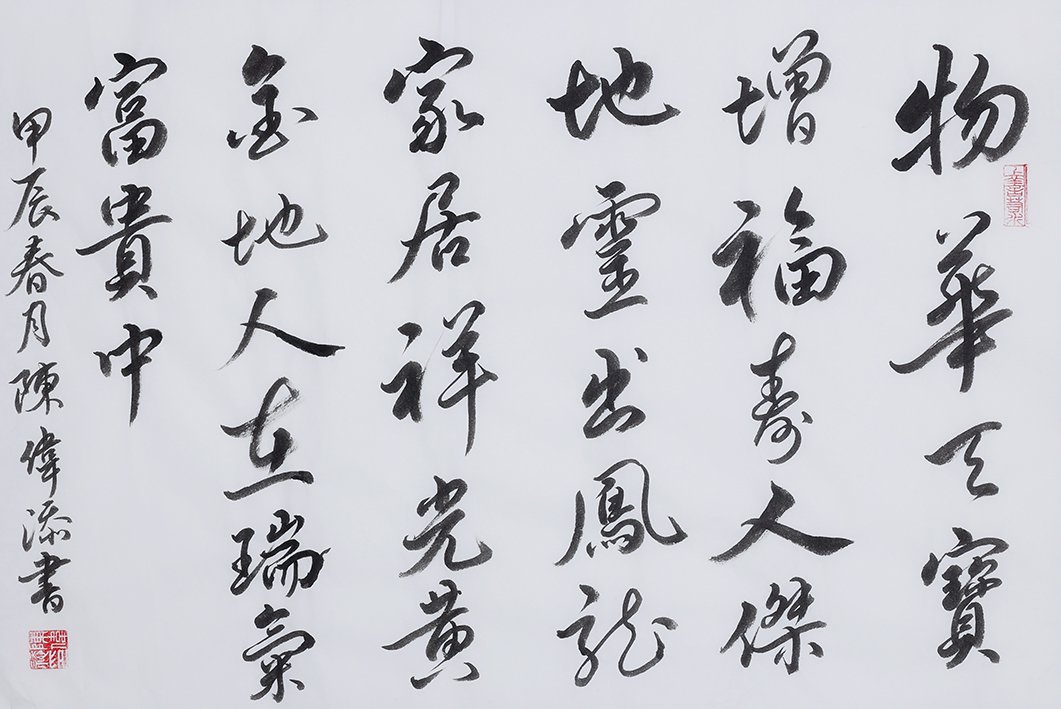 物華天寶
增福壽人傑
地靈出鳳龍
家居祥光黃
金地人在瑞氣
富貴中
甲辰春月陳偉添書